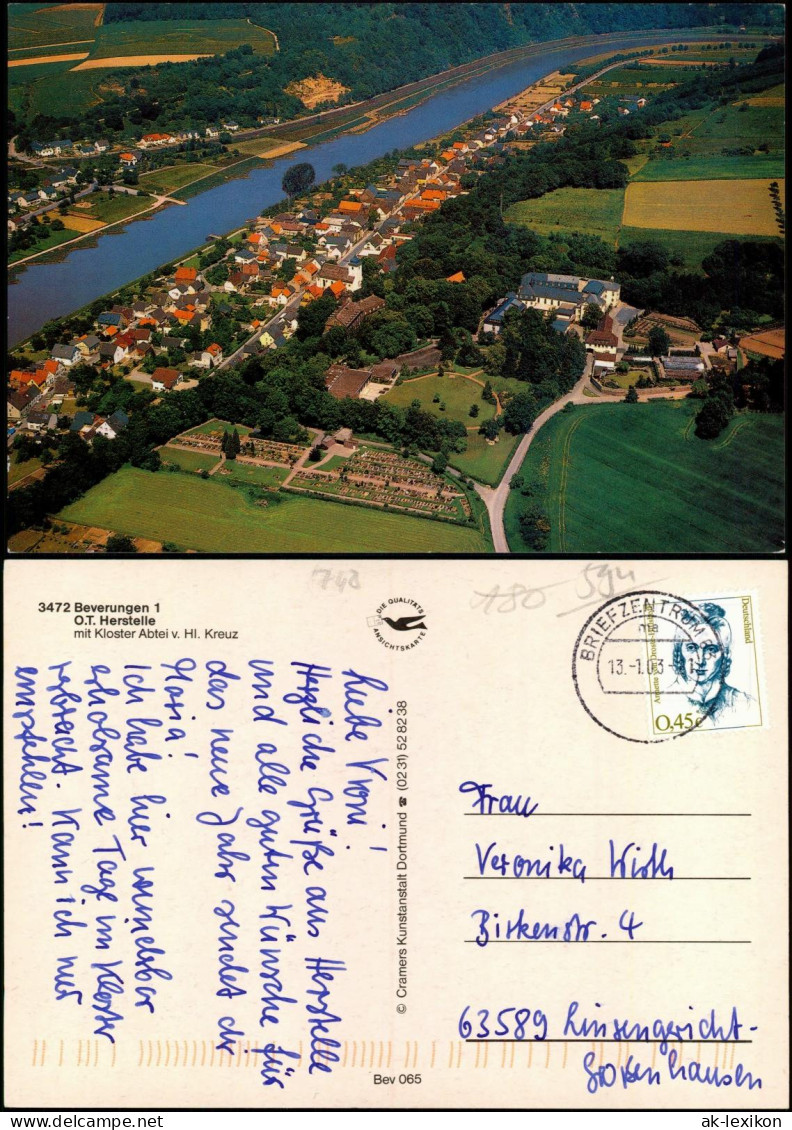 3472 Beverungen 1
O.T. Herstelle
mit Kloster Abtei v. Hl. Kreuz
DIE QUALITÄTS
ANSICHTSKARTE
748
180
594
BRIEFZENTRUM
13.-1.03
Deutschland
0,45€
Liebe Vroni!
Herzliche Grüße aus Herstelle
und alle guten Wünsche für
das neue Jahr sendet dir
Maria!
Ich habe hier wunderbar
erholsame Tage im Kloster
verbracht. Kann ich nur
empfehlen!
© Cramers Kunstanstalt Dortmund ☎ (02 31) 52 82 38
Frau
Veronika Wirth
Birkenstr. 4
63589 Linsengericht-
Großenhausen
Bev 065
ak-lexikon